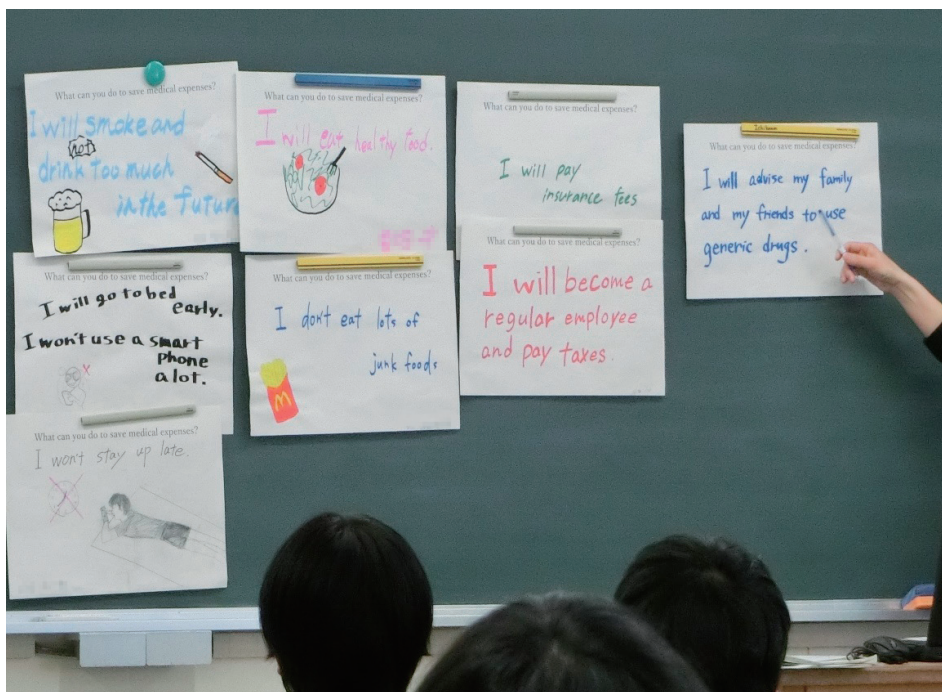 What can you do to save medical expenses?
I will smoke and
not
drink too much
in the future
What can you do to save medical expenses?
I will eat healthy food.
What can you do to save medical expenses?
I will pay
insurance fees
What can you do to save medical expenses?
I will advise my family
and my friends to use
generic drugs.
What can you do to save medical expenses?
I will go to bed
early.
I won't use a smart
phone
a lot.
What can you do to save medical expenses?
I don't eat lots of
junk foods
M
I will become a
regular employee
and pay taxes.
What can you do to save medical expenses?
I won't stay up late.